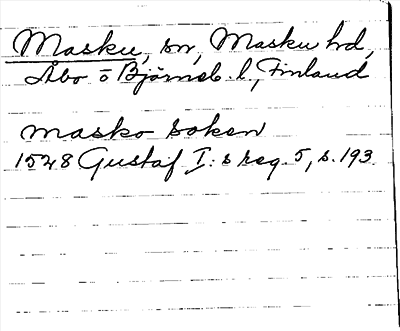 Masku, sn, Masku hd,
Åbo o Björneb. l., Finland
masko soken
1528 Gustaf I:s reg. 5, s. 193